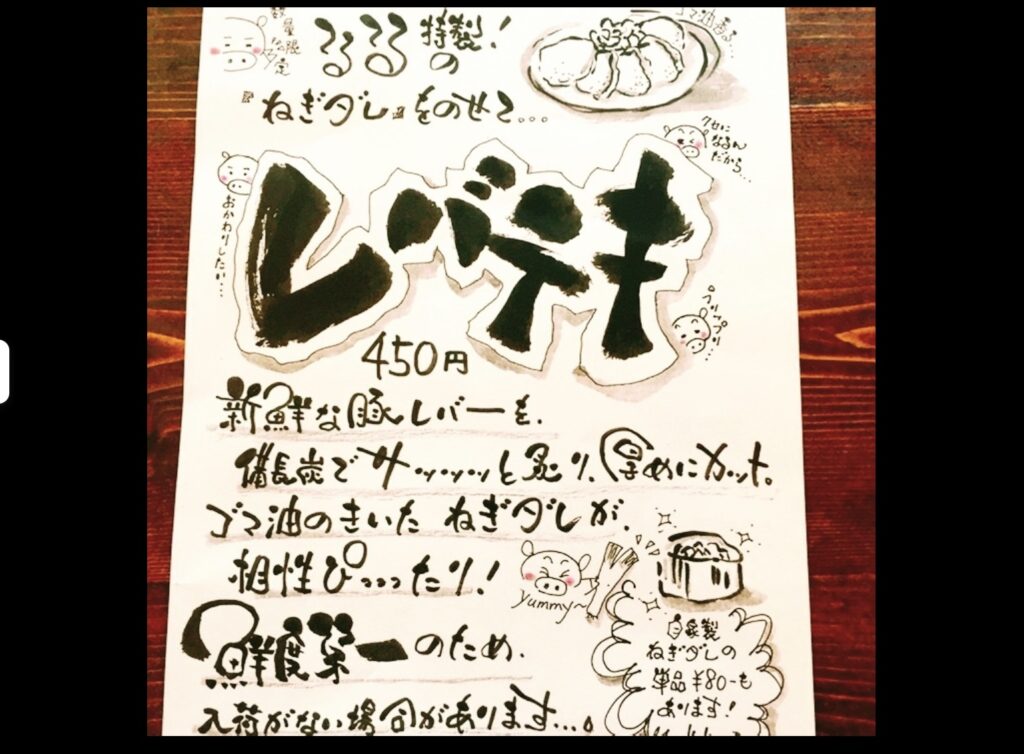 数量限定
なのダ
るるる特製！
の
『ねぎダレ』をのせて...
ゴマ油香る...
クセに
なるん
だから...
おかわりしたい...
レバテキ
プリップリ...
450円
新鮮な豚レバーを、
備長炭でサッッッッと炙り、厚めにカット。
ゴマ油のきいた ねぎダレが、
相性ぴっっったり！
yummy〜
鮮度第一のため、
入荷がない場合があります...。
自家製
ねぎダレの
単品¥80-も
あります！